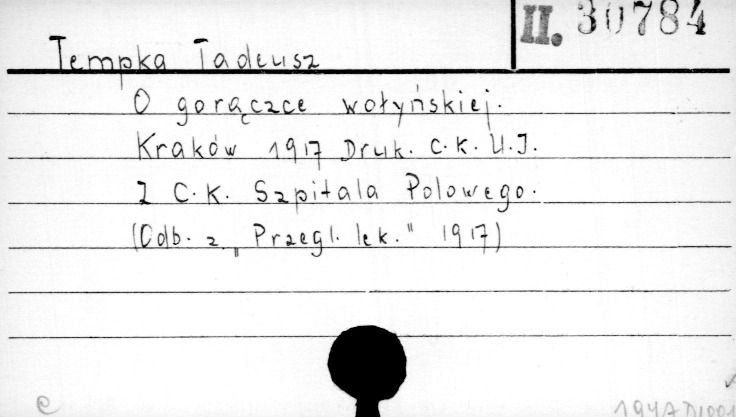 II. 30784
Tempka Tadeusz
O gorączce wołyńskiej.
Kraków 1917 Druk. C.K. U.J.
Z C.K. Szpitala Polowego.
(Odb. z „Przegl. lek." 1917)
e